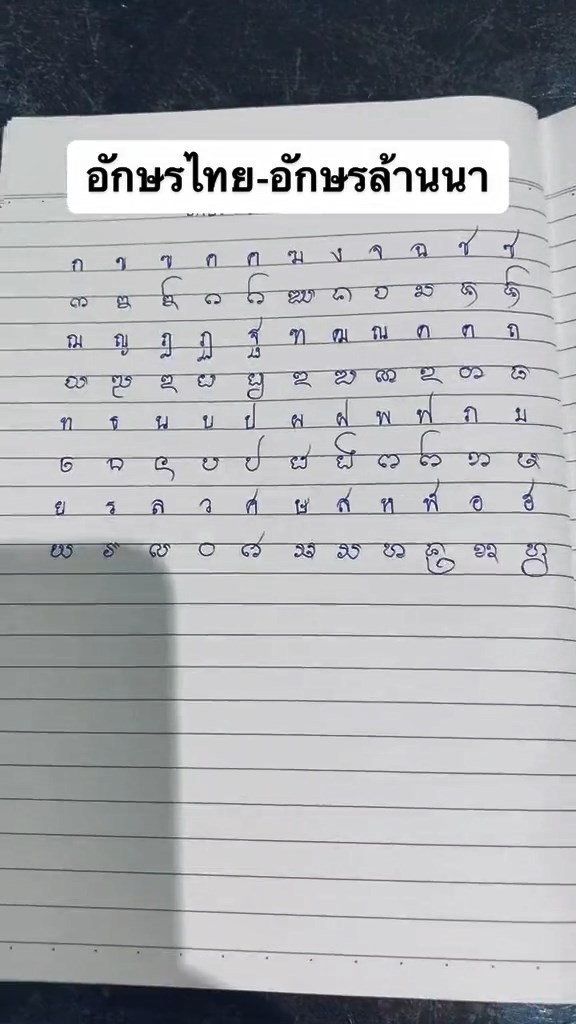 อักษรไทย-อักษรล้านนา
ก ข ฃ ค ฅ ฆ ง จ ฉ ช ซ
ᨠ ᨡ ᨢ ᨣ ᨤ ᨥ ᨦ ᨧ ᨨ ᨩ ᨪ
ฌ ญ ฎ ฏ ฐ ฑ ฒ ณ ด ต ถ
ᨫ ᨬ ᨯ ᨭ ᨮ ᨯ ᨰ ᨱ ᨯ ᨲ ᨳ
ท ธ น บ ป ผ ฝ พ ฟ ภ ม
ᨴ ᨵ ᨶ ᨷ ᨸ ᨹ ᨺ ᨻ ᨼ ᨽ ᨾ
ย ร ล ว ศ ษ ส ห ฬ อ ฮ
ᨿ ᩁ ᩃ ᩅ ᩆ ᩇ ᩈ ᩉ ᩊ ᩋ ᩌ